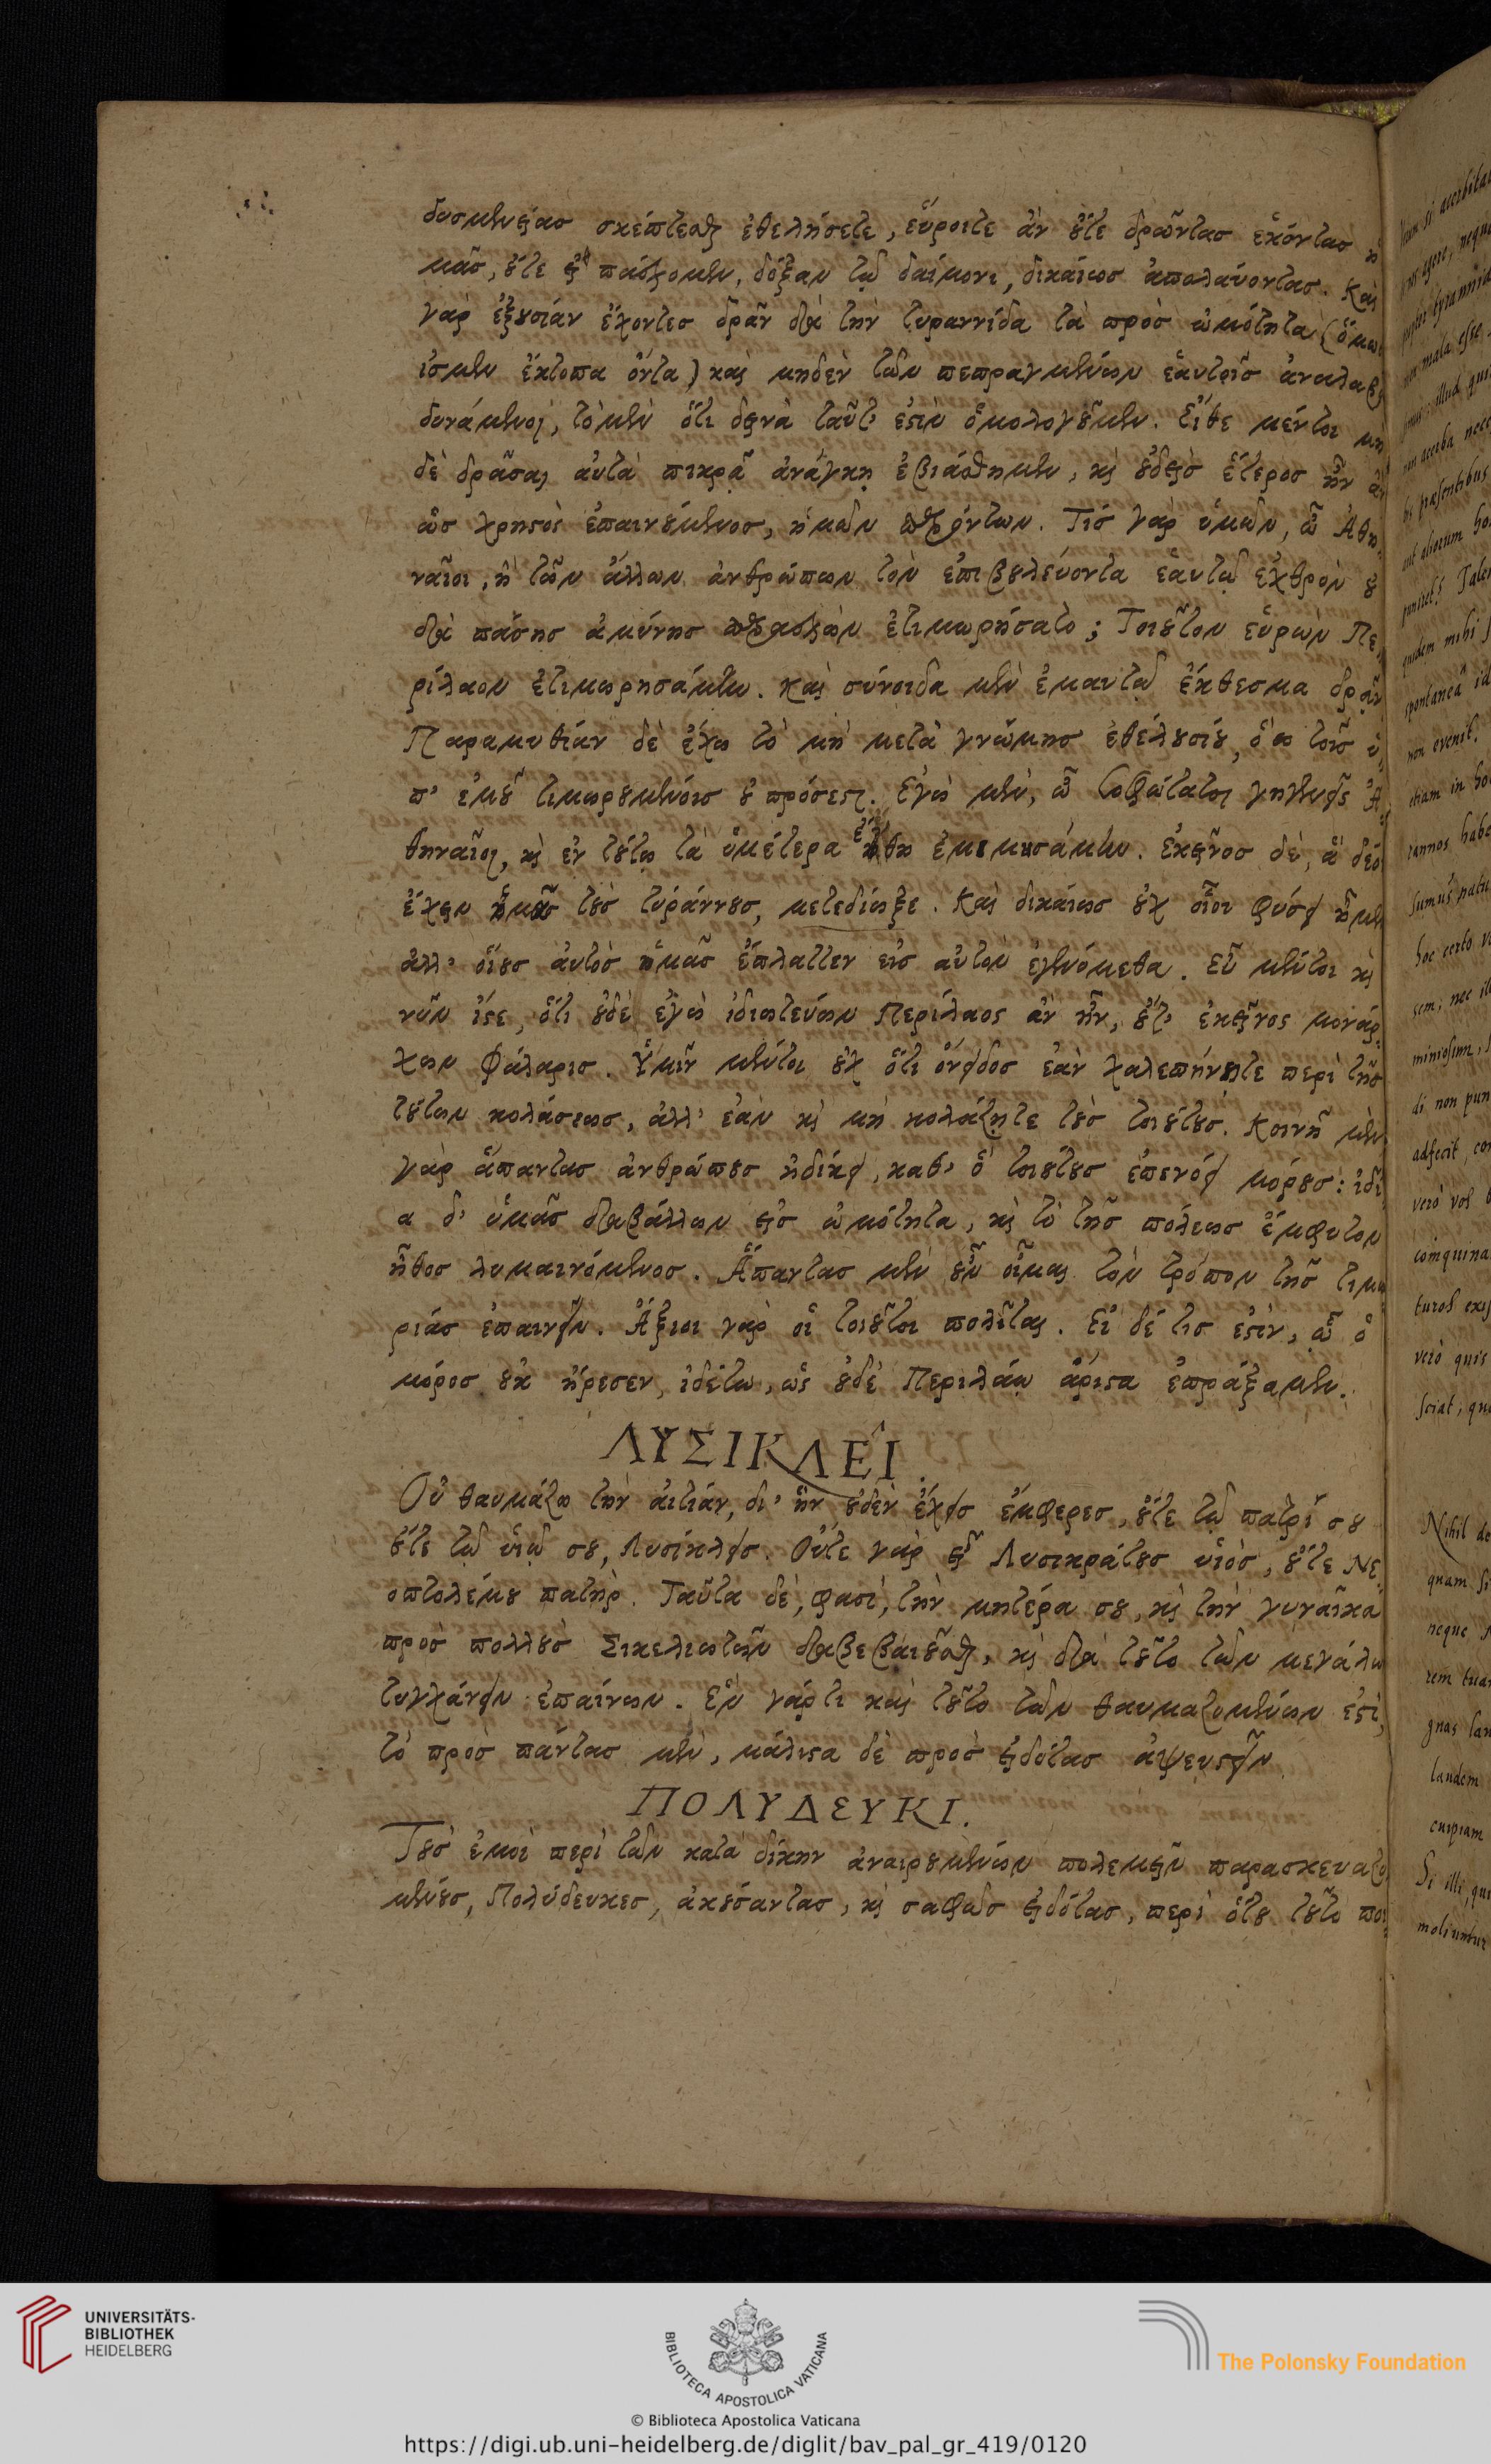 δυσμενείας σκέπτεσθαι ἐθελήσετε, εὕροιτε ἂν οὔτε δρῶντας ἑκόντας ἡ
μᾶς, οὔτε εἰ πάσχομεν, δόξαν τῷ δαίμονι, δικαίως ἀπολαύοντας. Καὶ
γὰρ ἐξουσίαν ἔχοντες δρᾶν διὰ τὴν τυραννίδα τὰ πρὸς ὠμότητα (ὅμως
ἴσμεν ἔκτοπα ὄντα) καὶ μηδὲν τῶν πεπραγμένων ἑαυτοῖς ἀναλαβεῖν
δυνάμενοι, τὸ μὲν ὅτι δεινὰ ταῦτ' ἐστὶν ὁμολογοῦμεν. Εἴθε μέντοι μη
δὲ δρᾶσαι αὐτὰ πικρᾷ ἀνάγκῃ ἐβιάσθημεν, καὶ οὐδεὶς ἕτερος ἦν ἂν
ὡς χρηστὸς ἐπαινούμενος, ἡμῶν παρόντων. Τίς γὰρ ὑμῶν, ὦ Ἀθη-
ναῖοι, ἢ τῶν ἄλλων ἀνθρώπων τὸν ἐπιβουλεύοντα ἑαυτῷ ἐχθρὸν οὐ
διὰ πάσης ἀμύνης παρασχὼν ἐτιμωρήσατο; Τοιοῦτον εὑρὼν Πε-
ρίλαον ἐτιμωρησάμην. καὶ σύνοιδα μὲν ἐμαυτῷ ἔκθεσμα δρᾶν
Παραμυθίαν δὲ ἔχω τὸ μὴ μετὰ γνώμης ἐθελουσίου, ὅπω τοῖς ὑ-
π' ἐμοῦ τιμωρουμένοις οὐ πρόσεστι. Ἐγὼ μὲν, ὦ σοφώτατοι γηγενεῖς Ἀ-
θηναῖοι, καὶ ἐν τούτῳ τὰ ὑμέτερα ἔθη ἐμιμησάμην. ἐκεῖνος δὲ, ἃ δέος
ἔχειν ἡμᾶς τοὺς τυράννους, μετεδίωξε. Καὶ δικαίως οὐχ οἷοι φύσει ἦμεν
ἀλλ' οἵους αὐτὸς ἡμᾶς ἔπλαττεν εἰς αὐτὸν ἐγενόμεθα. εὖ μέντοι καὶ
νῦν ἴστε, ὅτι οὐδὲ ἐγὼ ἰδιωτεύων Περίλαος ἂν ἦν, οὔτ' ἐκεῖνος μοναρ-
χῶν Φάλαρις. Ὑμῖν μέντοι οὐχ ὅτι ὄνειδος ἐὰν χαλεπήνητε περὶ τῆς
τούτων κολάσεως, ἀλλ' ἐὰν καὶ μὴ κολάζητε τοὺς τοιούτους. Κοινῇ μὲν
γὰρ ἅπαντας ἀνθρώπους ἠδίκει, καθ' ὃ τοιούτους ἐπενόει μόρους: ἰδί
α δ' ὑμᾶς διαβάλλων εἰς ὠμότητα, καὶ τὸ τῆς πόλεως ἔμφυτον
ἦθος λυμαινόμενος. Ἅπαντας μὲν οὖν οἶμαι τὸν τρόπον τῆς τιμω
ρίας ἐπαινεῖν. Ἄξιοι γὰρ οἱ τοιοῦτοι πολῖται. Εἰ δέ τις ἐστὶν, ᾧ ὁ
μόρος οὐκ ἤρεσεν, ἰδέτω, ὡς οὐδὲ Περιλάῳ ἄριστα ἐπράξαμεν.
ΛΥΣΙΚΛΕῖ.
Οὐ θαυμάζω τὴν αἰτίαν, δι' ἣν οὐδὲν ἔχεις ἐμφερες, οὔτε τῷ πατρί σου
οὔτε τῷ υἱῷ σου, Λυσίκλεις. Οὔτε γὰρ εἶ Λυσικράτους υἱὸς, οὔτε Νε-
οπτολέμου πατήρ. Ταῦτα δὲ, φασὶ, τὴν μητέρα σου, καὶ τὴν γυναῖκα
πρὸς πολλοὺς Σικελιωτῶν διαβεβαιοῦσθαι, καὶ διὰ τοῦτο τῶν μεγάλων
τυγχάνειν ἐπαίνων. Ἓν γάρ τι καὶ τοῦτο τῶν θαυμαζομένων ἐστὶ,
τὸ πρὸς πάντας μὲν, μάλιστα δὲ πρὸς εἰδότας ἀψευστεῖν
ΠΟΛΥΔΕΥΚΙ.
Τοὺς ἐμοὶ περὶ τῶν κατὰ δίκην ἀναιρουμένων πολεμεῖν παρασκευαζο
μένους, Πολύδευκες, ἀκούσαντας, καὶ σαφῶς εἰδότας, περὶ ὅτου τοῦτο ποι-
UNIVERSITÄTS-
BIBLIOTHEK
HEIDELBERG
BIBLIOTECA APOSTOLICA VATICANA
The Polonsky Foundation
© Biblioteca Apostolica Vaticana
https://digi.ub.uni-heidelberg.de/diglit/bav_pal_gr_419/0120